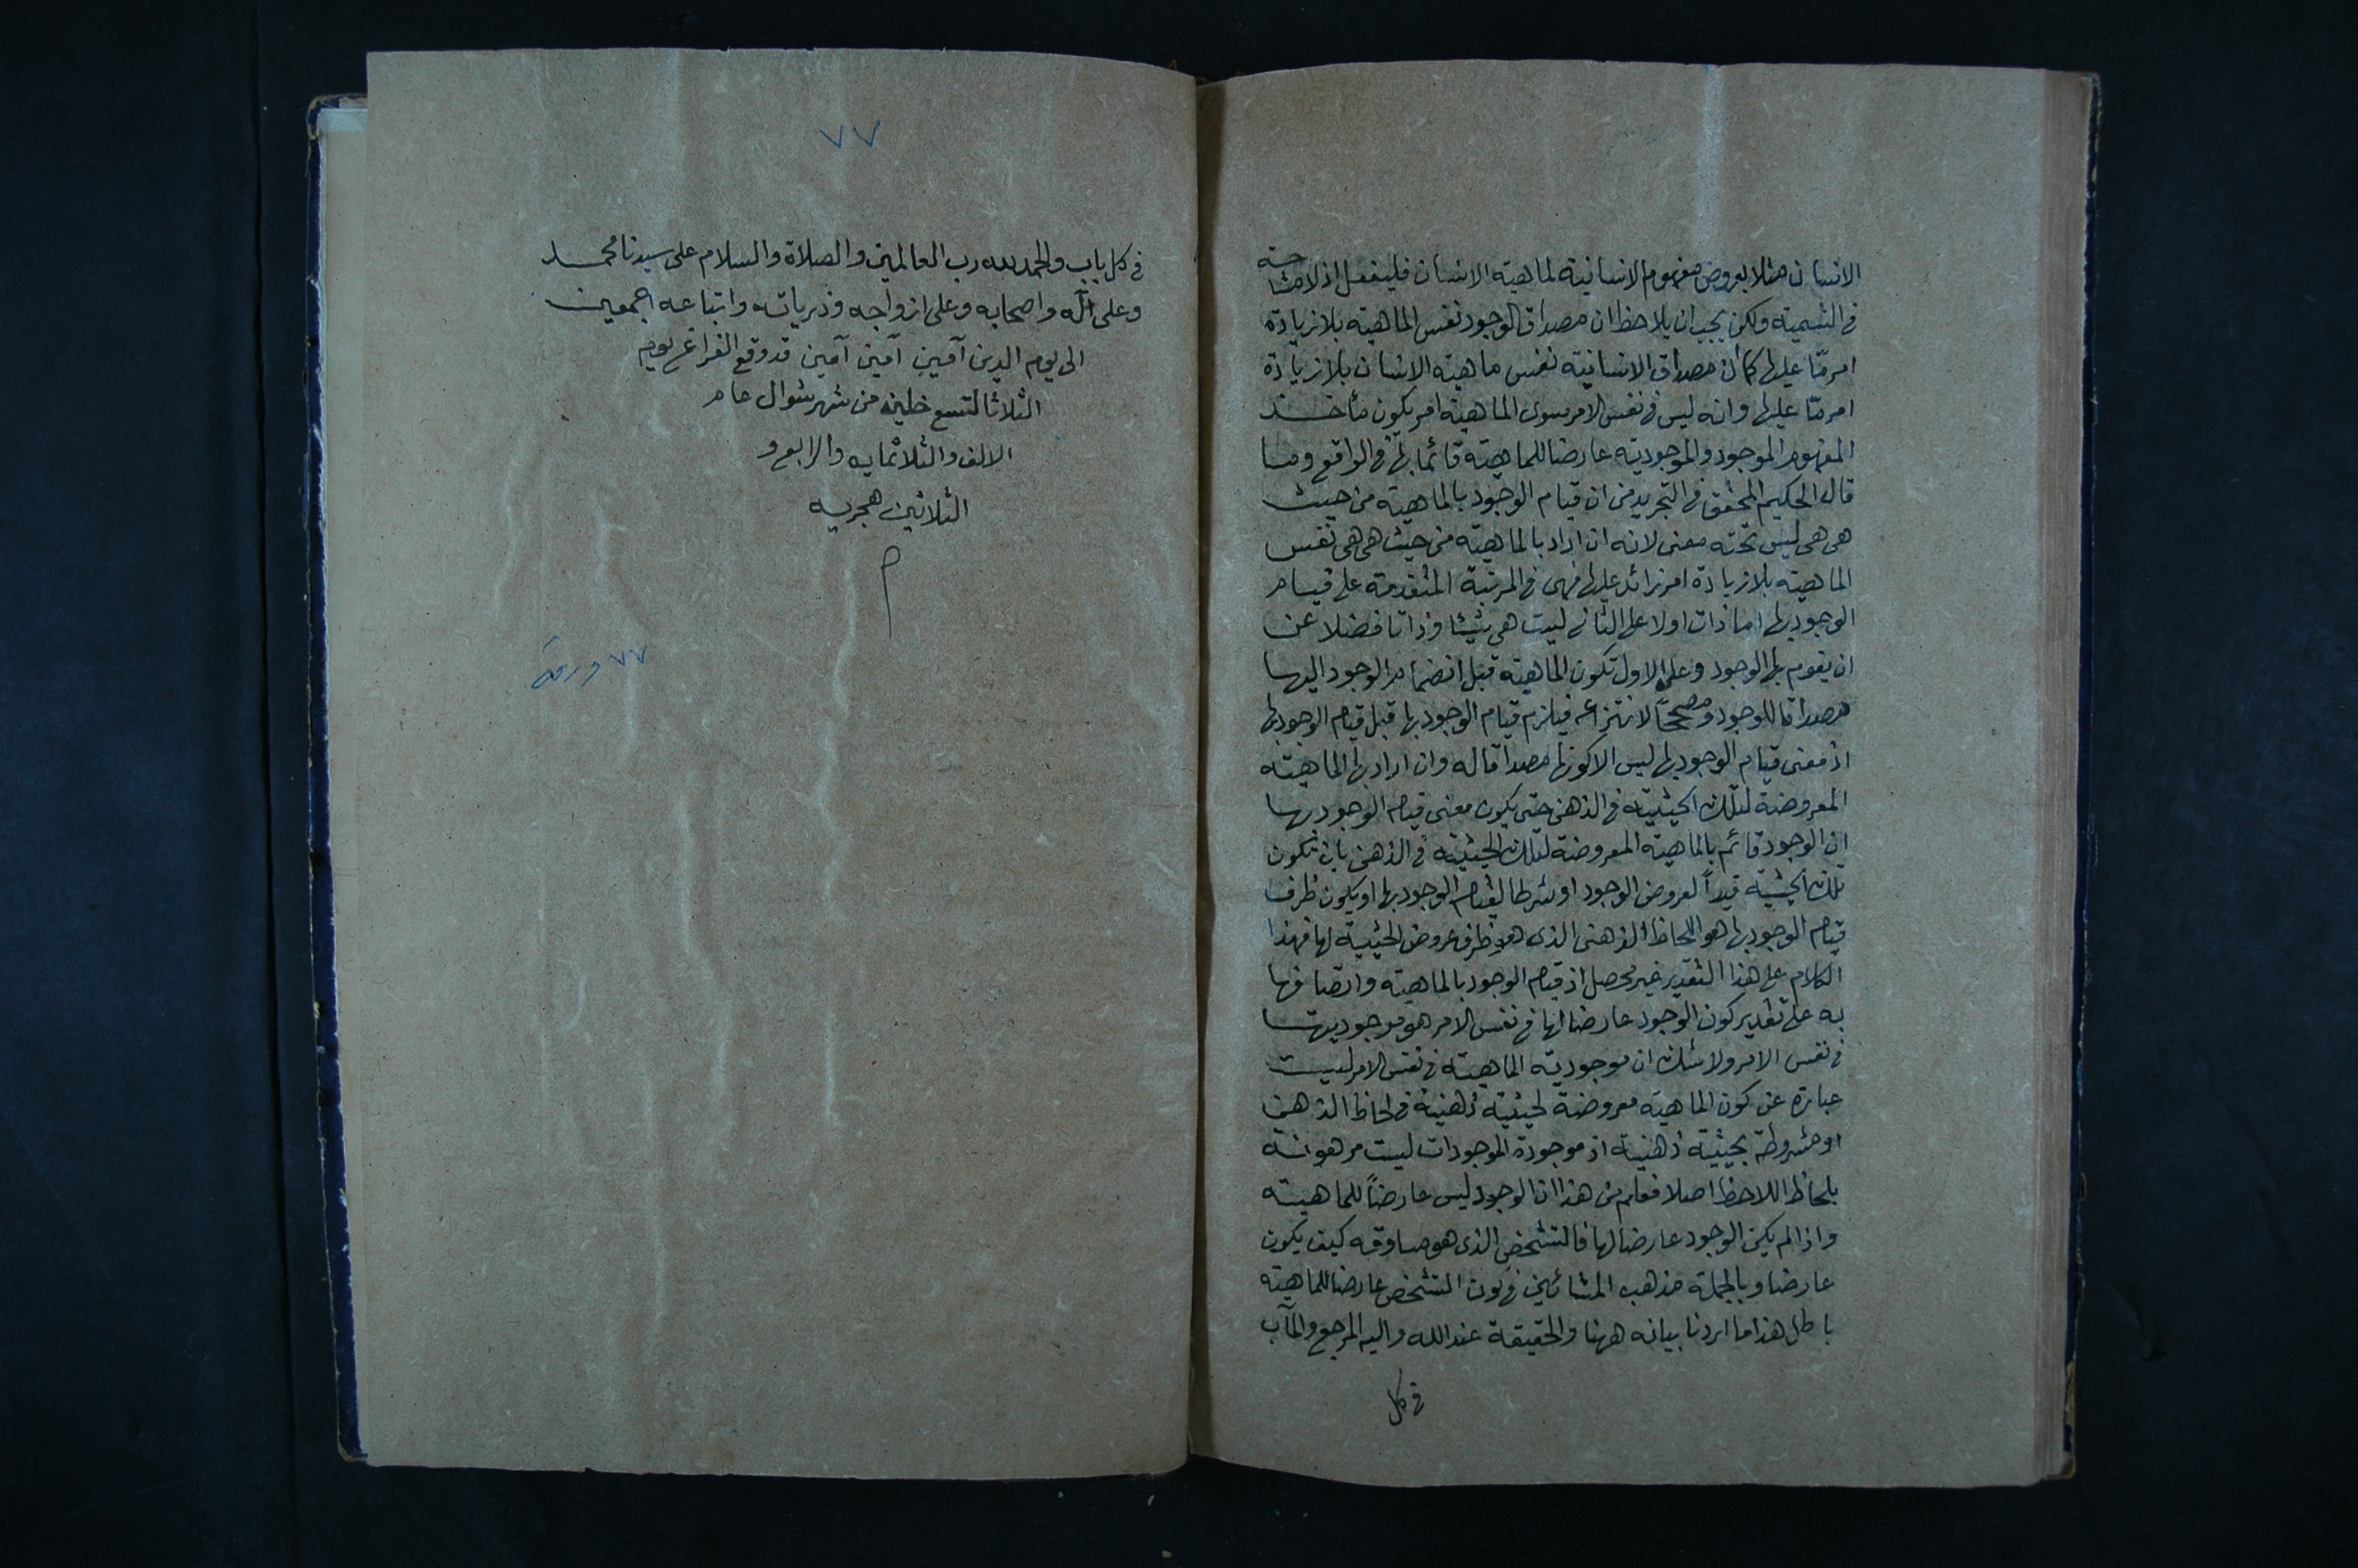 الانسان مثلا بعروض مفهوم الانسانية لماهية الانسان فليفعل اذ لا مشاحة
فى التسمية ولكن يجب ان يلاحظ ان مصداق الوجود نفس الماهية بلا زيادة
امر مّا عليها كما ان مصداق الانسانية نفس ماهية الانسان بلا زيادة
امر مّا عليها وانه ليس فى نفس الامر سوى الماهية امر يكون مأخذ
المفهوم الموجود والموجودية عارضا للماهية قائما بها فى الواقع وما
قال الحكيم المحقق فى التجريد من ان قيام الوجود بالماهية من حيث
هى هى ليس تحته معنى لانه ان اراد بالماهية من حيث هى هى نفس
الماهية بلا زيادة امر زائد عليها فهى فى المرتبة المتقدمة على قيام
الوجود بها اما ذات اولا على الثانى ليست هى شيئا وذاتا فضلا عن
ان يقوم بها الوجود وعلى الاول تكون الماهية قبل انضمام الوجود اليها
مصداقا للوجود ومصححاً لانتزاعه فيلزم قيام الوجود بها قبل قيام الوجود بها
اذ معنى قيام الوجود بها ليس الا كونها مصداقا له وان اراد بها الماهية
المعروضة لتلك الحيثية فى الذهن حتى يكون معنى قيام الوجود بها
ان الوجود قائم بالماهية المعروضة لتلك الحيثية فى الذهن بان تكون
تلك الحيثية قيداً لعروض الوجود او شرطا لقيام الوجود بها او يكون ظرف
قيام الوجود بها هو اللحاظ الذهنى الذى هو ظرف عروض الحيثية لها فهذا
الكلام على هذا التقدير غير محصل اذ قيام الوجود بالماهية واتصافها
به على تقدير كون الوجود عارضا لها فى نفس الامر هو موجوديتها
فى نفس الامر ولا شك ان موجودية الماهية فى نفس الامر ليست
عبارة عن كون الماهية معروضة لحيثية ذهنية فى لحاظ الذهن
او مشروطة بحيثية ذهنية اذ موجودة الموجودات ليست مرهونة
بلحاظ اللاحظ اصلا فعلم من هذا ان الوجود ليس عارضاً للماهية
واذا لم يكن الوجود عارضا لها فالتشخص الذى هو مساوقه كيف يكون
عارضا وبالجملة مذهب المشائين فى كون التشخص عارضا للماهية
باطل هذا ما اردنا بيانه ههنا والحقيقة عند الله واليه المرجع والمآب
فى كل
٧٧
فى كل باب والحمد لله رب العالمين والصلاة والسلام على سيدنا محمد
وعلى آله واصحابه وعلى ازواجه وذرياته واتباعه اجمعين
الى يوم الدين آمين آمين آمين قد وقع الفراغ يوم
الثلاثا لتسع خلين من شهر شوال عام
الالف والثلاثمايه والرابع و
الثلاثين هجريه
م
٧٧ ورقة